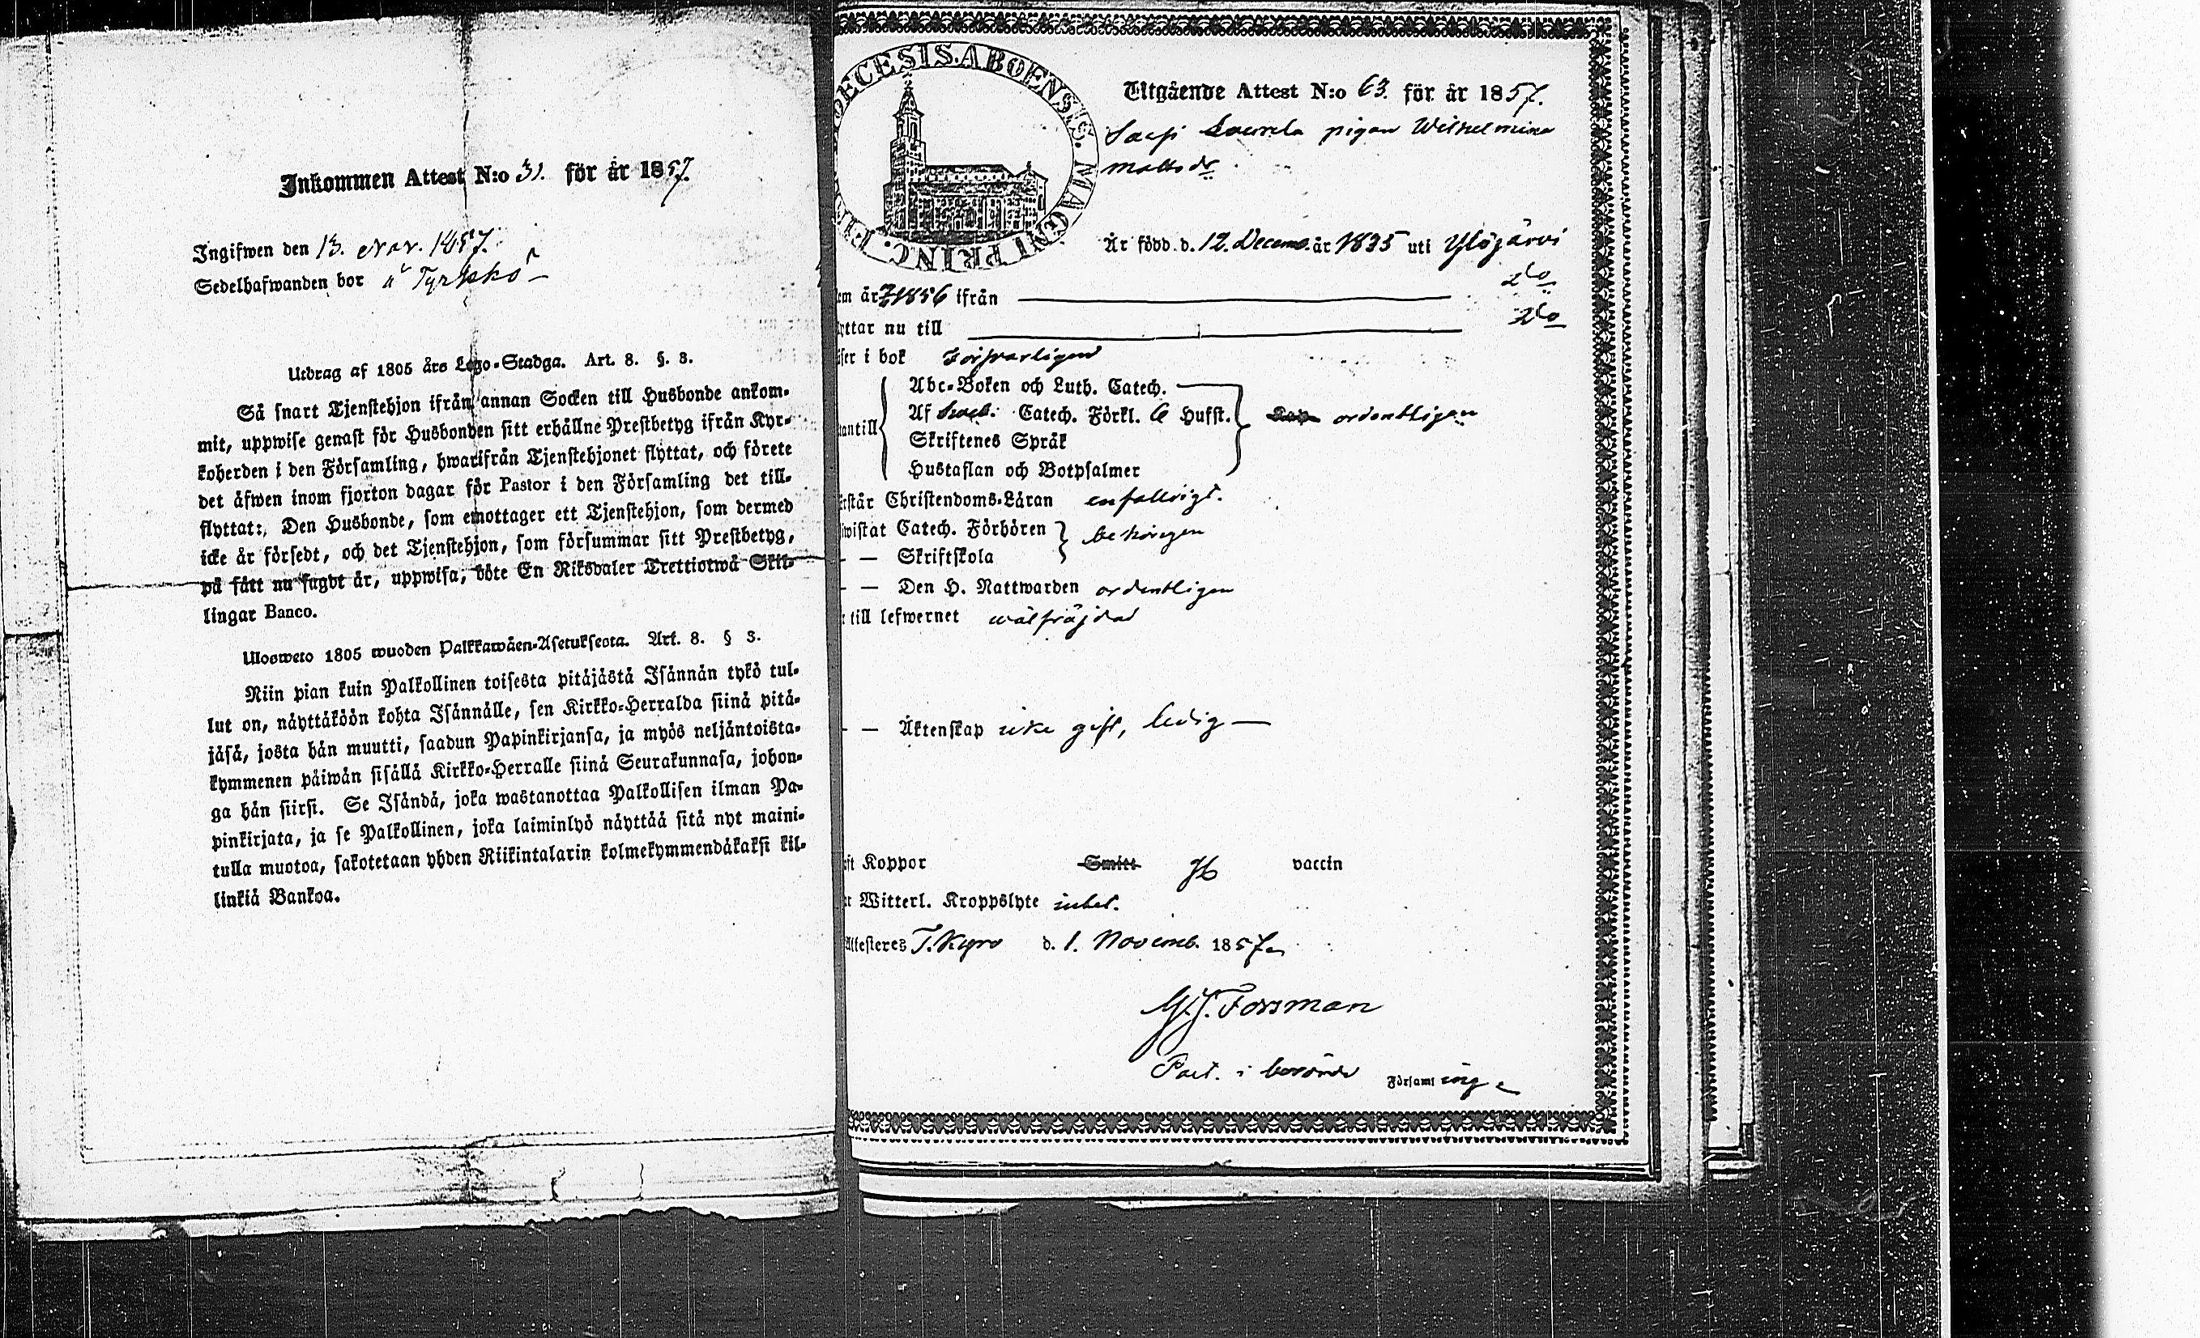 Inkommen Attest N:o 31. för år 1857.
Ingifwen den 13. Nov. 1857.
Sedelhafwanden bor å Tyrkkö
Utdrag af 1805 års Lego-Stadga. Art. 8. §. 3.
Så snart Tjenstehjon ifrån annan Socken till Husbonde ankom-
mit, uppwise genast för Husbonden sitt erhållne Prestbetyg ifrån Kyr-
koherden i den Församling, hwarifrån Tjenstehjonet flyttat, och förete
det äfwen inom fjorton dagar för Pastor i den Församling det till-
flyttat: Den Husbonde, som emottager ett Tjenstehjon, som dermed
icke är försedt, och det Tjenstehjon, som försummar sitt Prestbetyg,
på sätt nu sagdt är, uppwisa, böte En Riksdaler Trettiotwå Skil-
lingar Banco.
Ulosweto 1805 wuoden Palkkawäen-Asetuksesta. Art. 8. § 3.
Niin pian kuin Palkollinen toisesta pitäjästä Isännän tykö tul-
lut on, näyttäköön kohta Isännälle, sen Kirkko-Herralda siinä pitä-
jäsä, josta hän muutti, saadun Papinkirjansa, ja myös neljäntoista-
kymmenen päiwän sisällä Kirkko-Herralle siinä Seurakunnasa, johon-
ga hän siirsi. Se Isändä, joka wastanottaa Palkollisen ilman Pa-
pinkirjata, ja se Palkollinen, joka laiminlyö näyttää sitä nyt maini-
tulla muotoa, sakotetaan yhden Riikintalarin kolmekymmendäkaksi kil-
linkiä Bankoa.
DIOECESIS. ABOENSIS. MAGNI PRINC. FIN
Utgående Attest N:o 63. för år 1857.
pigan Wilhelmina
Mattsdr.
Är född d. 12. Decemb. år 1835 uti Ylöjärvi
em år 1856 ifrån do
yttar nu till do
äser i bok Försvarligen
Abc-Boken och Luth. Catech.
Af Sveb. Catech. Förkl. 6 Hufst.
antill ordentligen
Skriftenes Språk
Hustaflan och Botpsalmer
rstår Christendoms-Läran enfalldigt.
iwistat Catech. Förhören
behörigen
— Skriftskola
— Den H. Nattwarden ordentligen
till lefwernet wälfräjdad
— Äktenskap icke gift, ledig —
ft Koppor Smitt vaccin
r Witterl. Kroppslyte intet.
Attesteres T. Kyro d. 1. Novemb. 1857.
G.J. Forsman
Past. i berörde Församl ing